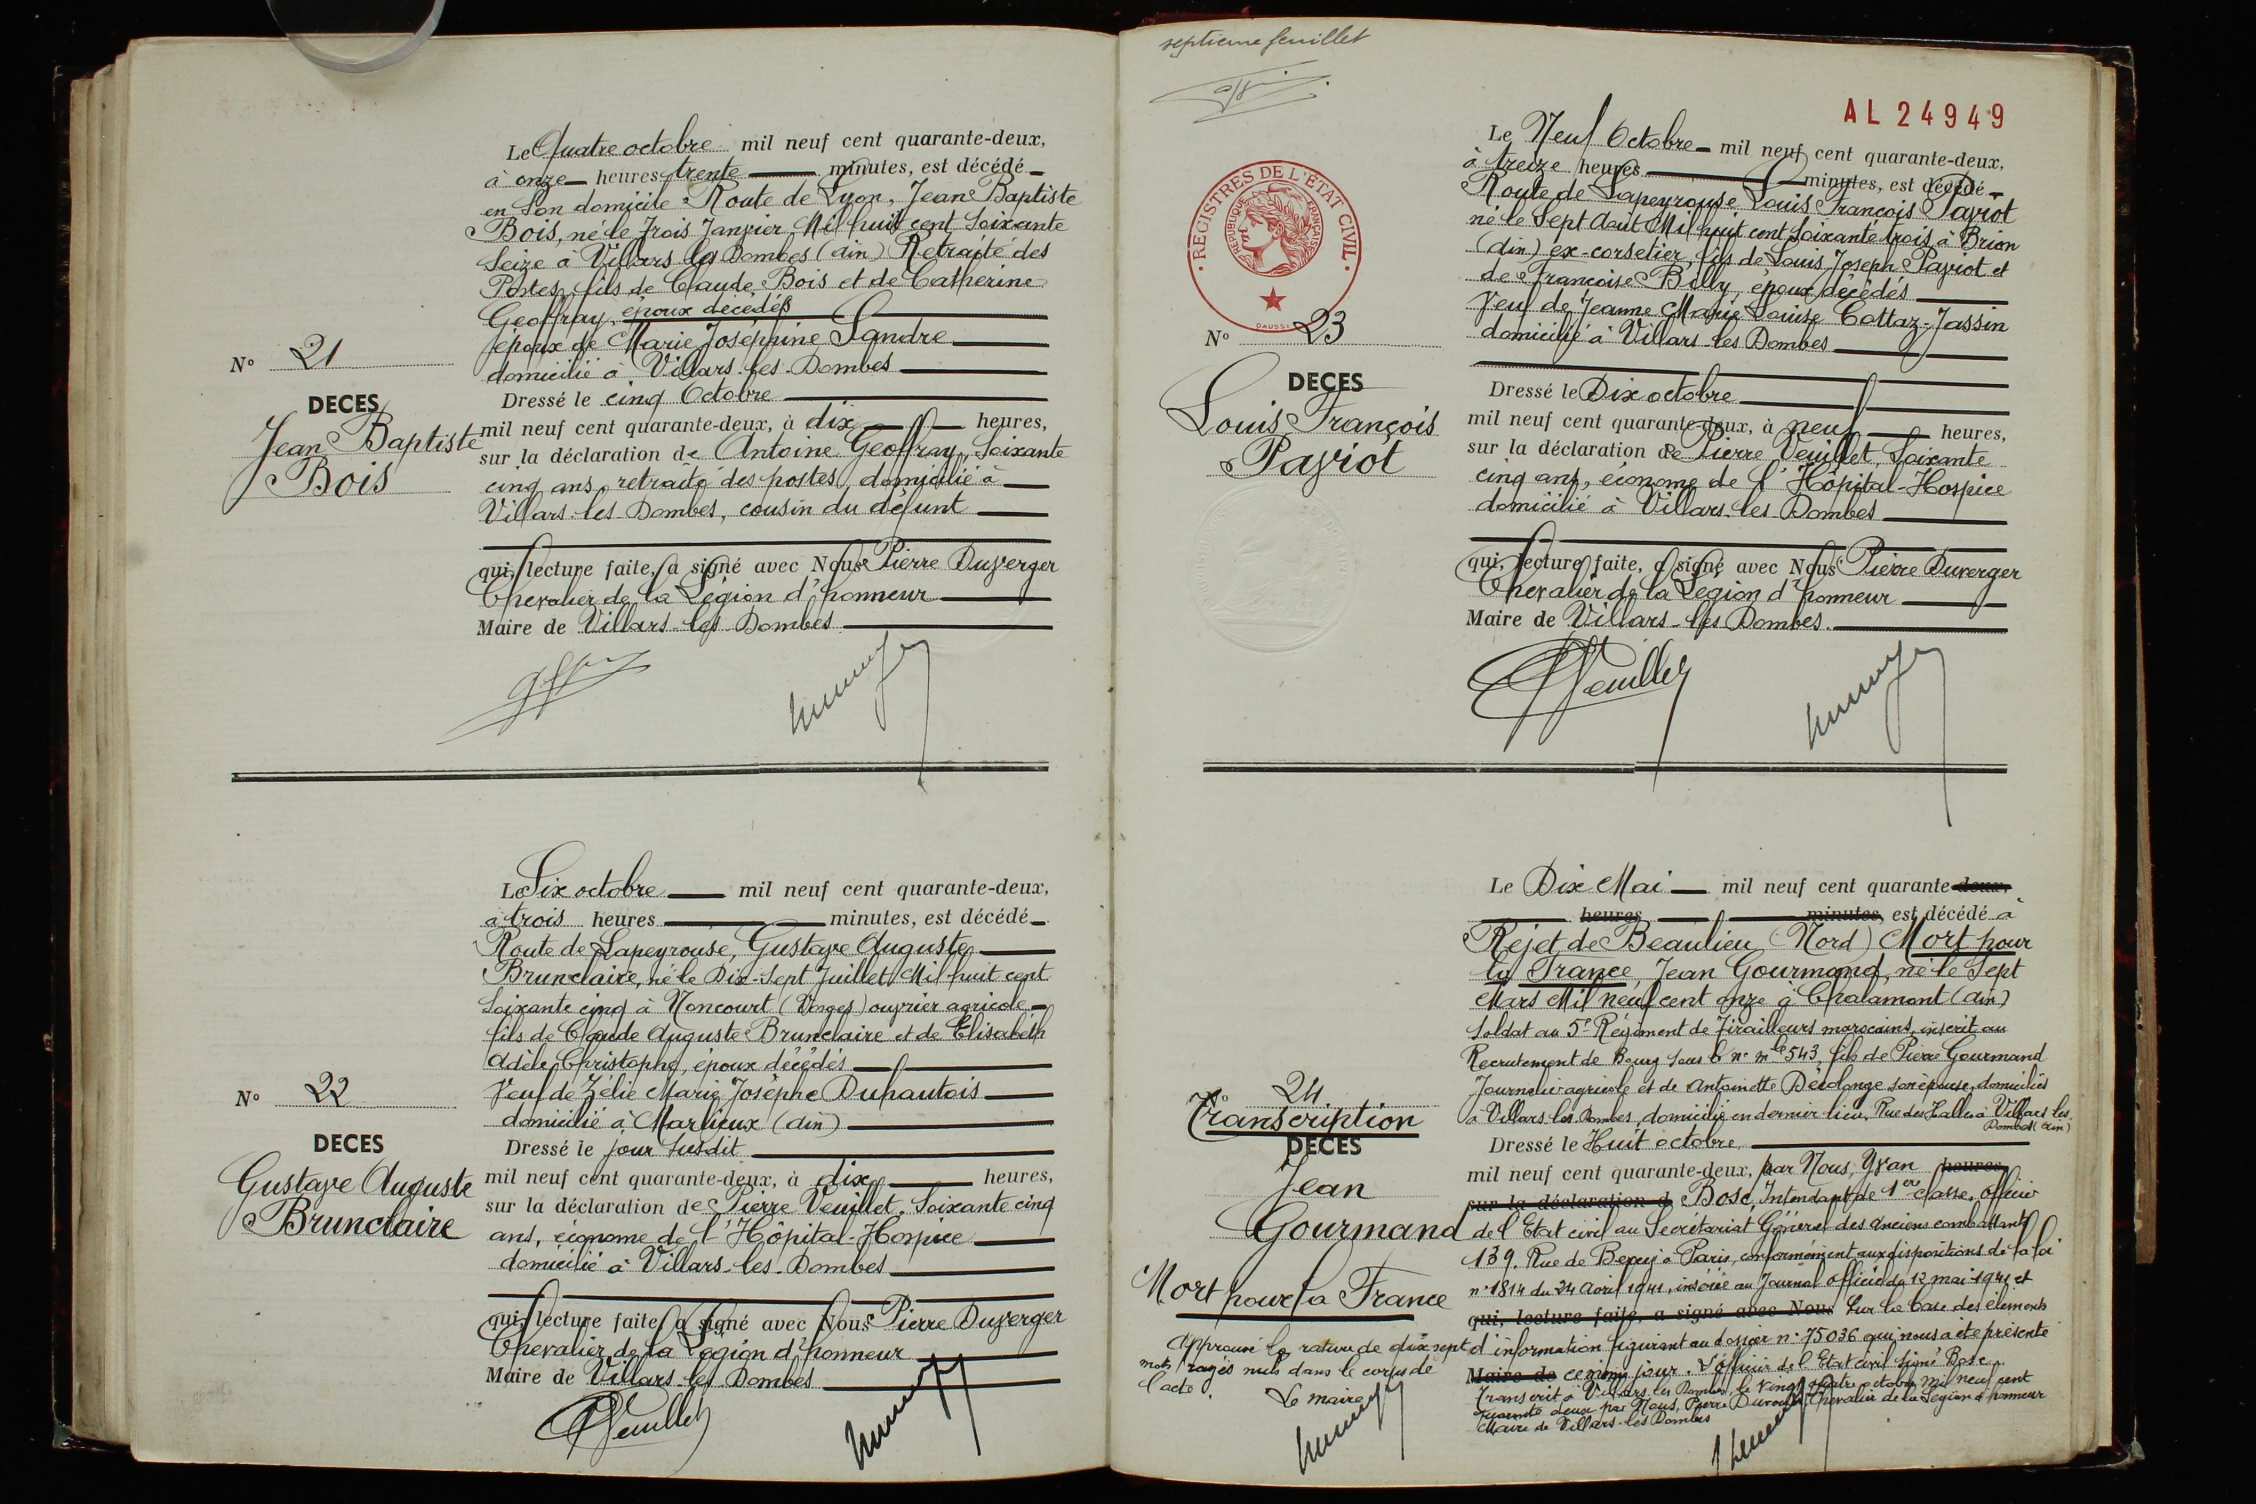 Le Quatre octobre mil neuf cent quarante-deux,
à onze heures trente minutes, est décédé
en son domicile Route de Lyon, Jean Baptiste
Bois, né le Trois Janvier Mil huit cent Soixante
Seize à Villars les Dombes (Ain) Retraité des
Postes, fils de Claude Bois et de Catherine
Geoffray, époux décédés
époux de Marie Joséphine Sandre
domicilié à Villars-les-Dombes
Dressé le cinq Octobre
mil neuf cent quarante-deux, à dix heures,
sur la déclaration de Antoine Geoffray, Soixante
cinq ans, retraité des postes, domicilié à
Villars-les-Dombes, cousin du défunt
qui, lecture faite, a signé avec Nous Pierre Duverger
Chevalier de la Légion d'honneur
Maire de Villars-les Dombes
N° 21
DECES
Jean Baptiste
Bois
Le Six octobre mil neuf cent quarante-deux,
à trois heures minutes, est décédé
Route de Lapeyrouse, Gustave Auguste
Brunclaire, né le Dix-Sept Juillet Mil huit cent
Soixante cinq à Noncourt (Vosges) ouvrier agricole
fils de Claude Auguste Brunclaire et de Elisabeth
Adèle Christophe, époux décédés
Veuf de Zélie Marie Josèphe Duhautois
domicilié à Marlieux (Ain)
Dressé le jour susdit
mil neuf cent quarante-deux, à dix heures,
sur la déclaration de Pierre Veuillet, Soixante cinq
ans, économe de l'Hôpital-Hospice
domicilié à Villars-les-Dombes
qui, lecture faite, a signé avec Nous Pierre Duverger
Chevalier de la Légion d'honneur
Maire de Villars-les Dombes
PVeuillet
N° 22
DECES
Gustave Auguste
Brunclaire
septieme feuillet
AL 24949
REGISTRES DE L'ETAT CIVIL
REPUBLIQUE FRANÇAISE
Le Neuf Octobre mil neuf cent quarante-deux,
à treize heures minutes, est décédé
Route de Lapeyrouse Louis François Payriot
né le Sept Août Mil huit cent soixante trois à Brion
(Ain) ex-corsetier, fils de Louis Joseph Payriot et
de Françoise Billy, époux décédés
Veuf de Jeanne Marie Louise Cottaz-Jassin
domicilié à Villars-les Dombes
Dressé le Dix octobre
mil neuf cent quarante-deux, à neuf heures,
sur la déclaration de Pierre Veuillet, Soixante
cinq ans, économe de l'Hôpital-Hospice
domicilié à Villars-les-Dombes
qui, lecture faite, a signé avec Nous Pierre Duverger
Chevalier de la Légion d'honneur
Maire de Villars-les Dombes.
PVeuillet
N° 23
DECES
Louis François
Payriot
Le Dix Mai mil neuf cent quarante deux,
heures minutes, est décédé à
Rejet de Beaulieu (Nord) Mort pour
la France, Jean Gourmand, né le Sept
Mars Mil neuf cent onze à Chalamont (Ain)
Soldat au 5e Régiment de Tirailleurs marocains, inscrit au
Recrutement de Bourg sous le n° mle 543, fils de Pierre Gourmand
Journalier agricole et de Antoinette Décolonge son épouse, domiciliés
à Villars les Dombes, domicilié en dernier lieu, Rue des Halles à Villars les
Dombes (Ain)
Dressé le Huit octobre
mil neuf cent quarante-deux, par Nous, Yvan heures,
sur la déclaration d Bosc, Intendant de 1ere classe, Officier
de l'Etat civil au Secrétariat Général des Anciens combattants
139. Rue de Bercy à Paris, conformément aux dispositions de la loi
n° 1814 du 24 Avril 1941, insérée au Journal officiel du 12 mai 1941 et
qui, lecture faite, a signé avec Nous Sur la base des éléments
d'information figurant au dossier n° 75036 qui nous a été présenté
Maire de ce même jour. L'officier de l'Etat civil signé Bosc.
Transcrit à Villars les Dombes, le vingt quatre octobre mil neuf cent
quarante deux par Nous, Pierre Duverger, Chevalier de la Légion d'honneur
Maire de Villars-les Dombes
N° 24
Transcription
DECES
Jean
Gourmand
Mort pour la France
Approuvé la rature de dix sept
mots rayés nuls dans le corps de
l'acte.
Le maire